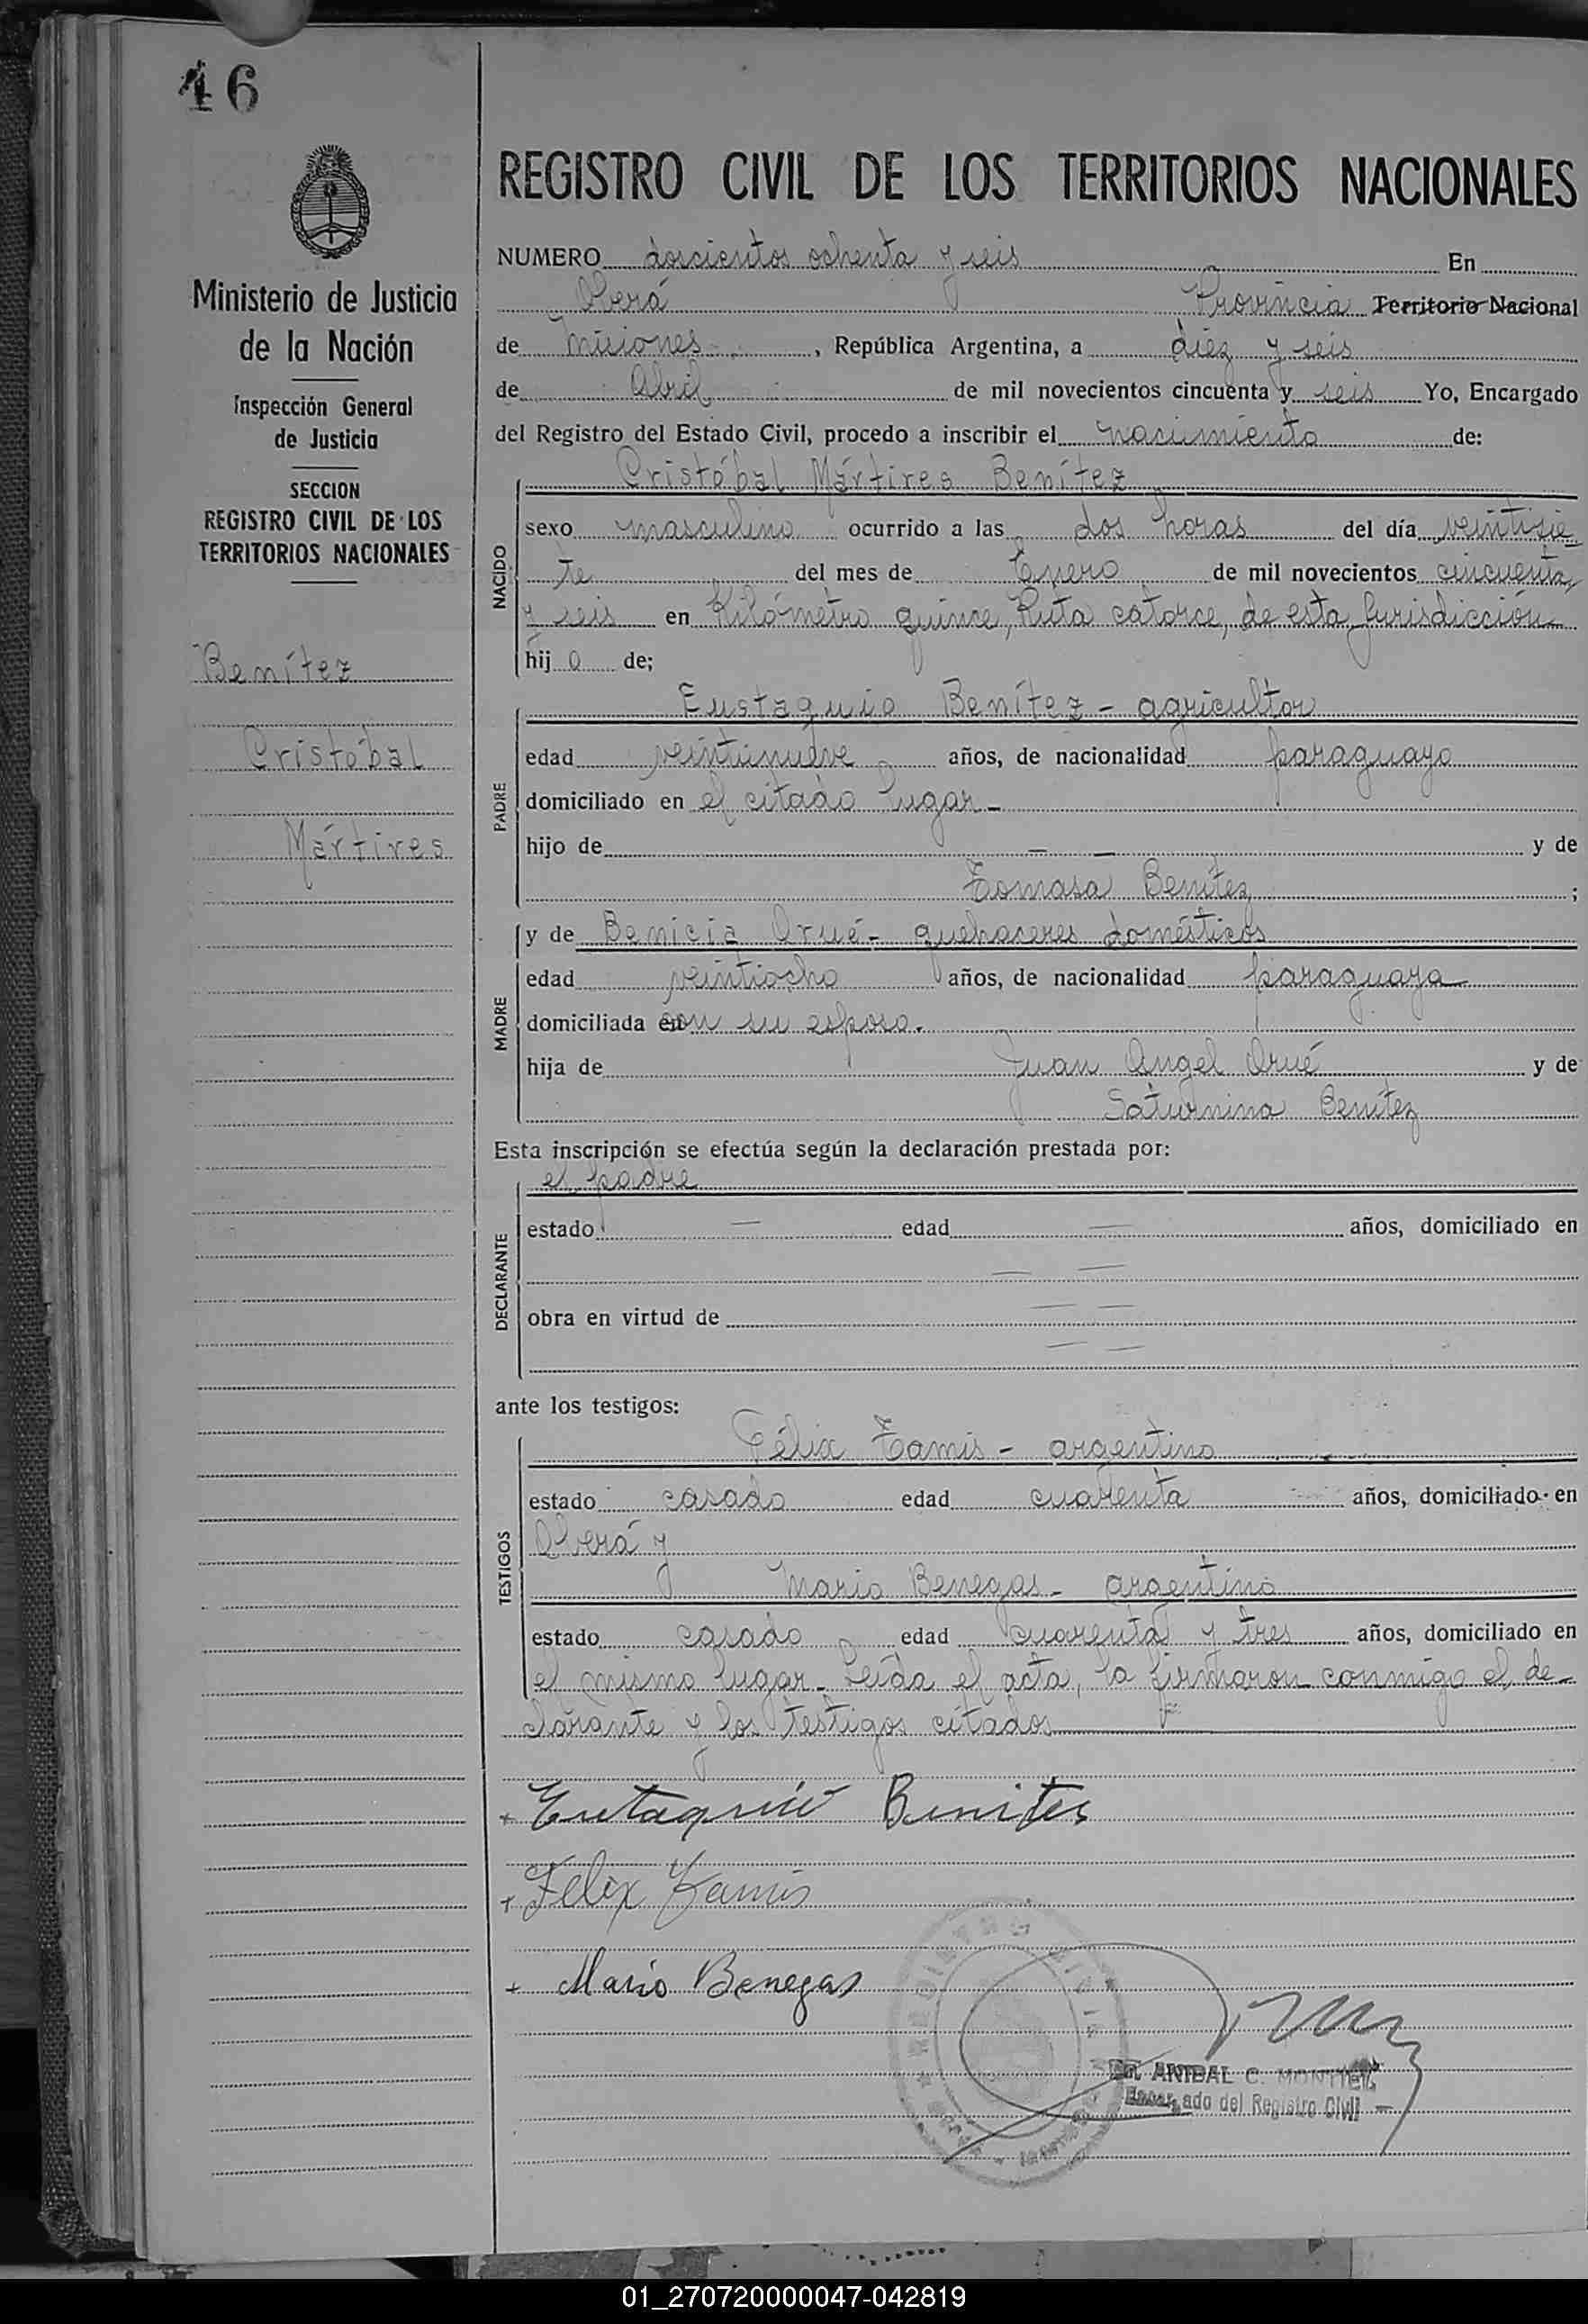 46
REGISTRO CIVIL DE LOS TERRITORIOS NACIONALES
Ministerio de Justicia
de la Nación
Inspección General
de Justicia
SECCION
REGISTRO CIVIL DE LOS
TERRITORIOS NACIONALES
Benítez
Cristóbal
Mártires
NUMERO doscientos ochenta y seis En
Oberá Provincia Territorio Nacional
de Misiones, República Argentina, a diez y seis
de Abril de mil novecientos cincuenta y seis Yo, Encargado
del Registro del Estado Civil, procedo a inscribir el nacimiento de:
NACIDO
Cristóbal Mártires Benítez
sexo masculino ocurrido a las dos horas del día veintisie-
te del mes de Enero de mil novecientos cincuenta
y seis en Kilómetro quince, Ruta catorce, de esta Jurisdicción
hij o de;
PADRE
Eustaquio Benítez - agricultor
edad veintinueve años, de nacionalidad paraguayo
domiciliado en el citado lugar -
hijo de — — y de
Tomasa Benítez ;
MADRE
y de Benicia Orué - quehaceres domésticos
edad veintiocho años, de nacionalidad paraguaya
domiciliada con su esposo.
hija de Juan Angel Orué y de
Saturnina Benítez
Esta inscripción se efectúa según la declaración prestada por:
DECLARANTE
el padre
estado — edad — años, domiciliado en
— —
obra en virtud de — —
— —
ante los testigos:
TESTIGOS
Félix Tamis - argentino
estado casado edad cuarenta años, domiciliado en
Oberá y
Mario Benegas - argentino
estado casado edad cuarenta y tres años, domiciliado en
el mismo lugar - Leída el acta, la firmaron conmigo el de-
clarante y los testigos citados
+ Eutaquio Benites
+ Felix Tamis
+ Mario Benegas
ANIBAL C. MONTIEL
Encargado del Registro Civil
01_270720000047-042819